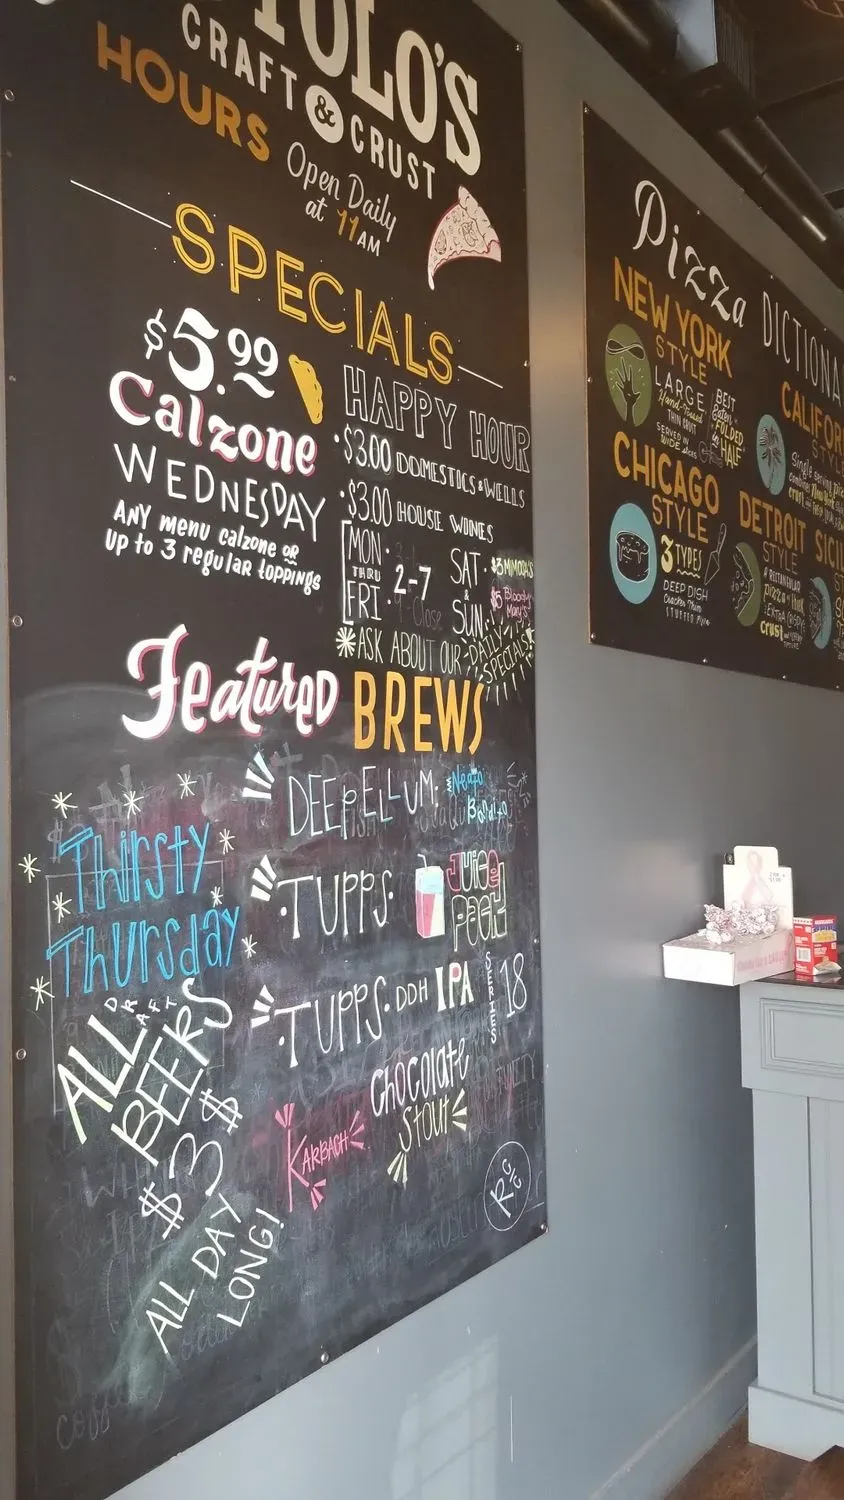 TOLO'S
CRAFT & CRUST
HOURS
Open Daily
at 11AM
SPECIALS
$5.99
Calzone
WEDNESDAY
ANY menu calzone or
up to 3 regular toppings
HAPPY HOUR
•$3.00 DOMESTICS & WELLS
•$3.00 HOUSE WINES
MON•
THRU
FRI•
2-7
9-Close
SAT•
&
SUN•
$3 MIMOSA'S
$5 Bloody
Mary's
*ASK ABOUT OUR DAILY
SPECIALS!
Featured BREWS
DEEP ELLUM: Neato
Bandito
•TUPPS• Juice
pack
•TUPPS• DDH IPA SERIES 18
Karbach Chocolate
Stout
RCC
Thirsty
Thursday
ALL DRAFT
BEERS
$3$
ALL DAY
LONG!
Pizza DICTIONA
NEW YORK
STYLE
LARGE,
Hand-tossed
THIN CRUST
SERVED IN
WIDE slices
BEST
Eaten
FOLDED
in
HALF
CHICAGO
STYLE
3 TYPES
DEEP DISH
Cracker Thin
STUFFED Pizza
CALIFOR
STYL
Single serving
DETROIT
STYLE
RECTANGULAR
pizza
EXTRA CRISPY
crust
SICI
ST